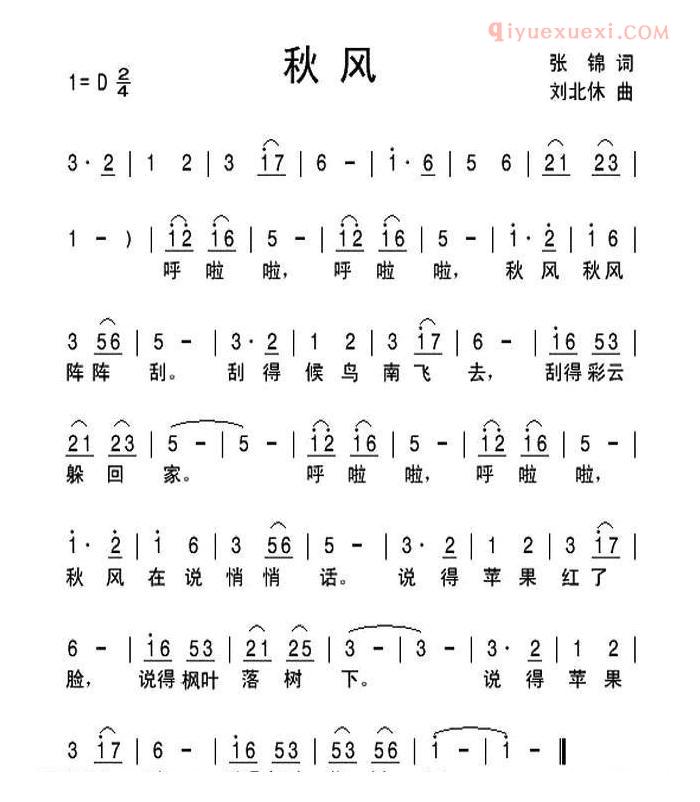 qiyuexuexi.com
秋风
张 锦 词
1= D 2/4
刘北休 曲
3· 2 | 1 2 | 3 i7 | 6 – | i· 6 | 5 6 | 21 23 |
1 – ) | i2̇ i6 | 5 – | i2̇ i6 | 5 – | i· 2̇ | i 6 |
呼 啦 啦, 呼 啦 啦, 秋 风 秋风
3 56 | 5 – | 3· 2 | 1 2 | 3 i7 | 6 – | i6 53 |
阵阵 刮。 刮 得 候 鸟 南 飞 去, 刮得 彩云
21 23 | 5 – | 5 – | i2̇ i6 | 5 – | i2̇ i6 | 5 – |
躲 回 家。 呼 啦 啦, 呼 啦 啦,
i· 2̇ | i 6 | 3 56 | 5 – | 3· 2 | 1 2 | 3 i7 |
秋 风 在 说 悄 悄 话。 说 得 苹 果 红 了
6 – | i6 53 | 21 25 | 3 – | 3 – | 3· 2 | 1 2 |
脸, 说得 枫叶 落 树 下。 说 得 苹果
3 i7 | 6 – | i6 53 | 53 56 | i – | i – ‖